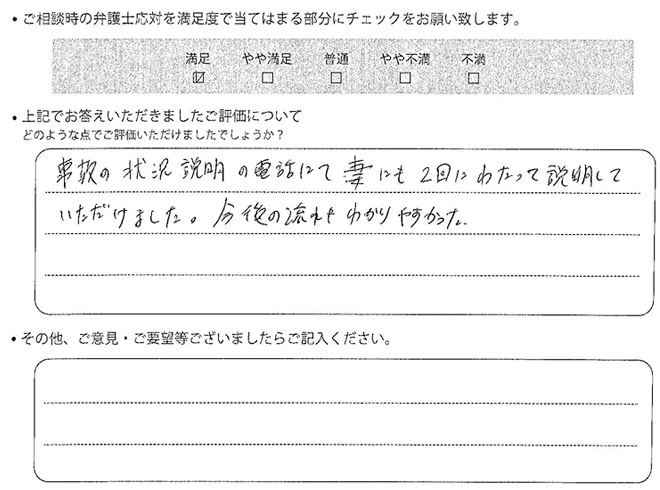 ・ご相談時の弁護士応対を満足度で当てはまる部分にチェックをお願い致します。
満足 やや満足 普通 やや不満 不満
☑ □ □ □ □
・上記でお答えいただきましたご評価について
どのような点でご評価いただけましたでしょうか？
事故の状況説明の電話にて妻にも2回にわたって説明して
いただけました。今後の流れもわかりやすかった。
・その他、ご意見・ご要望等ございましたらご記入ください。